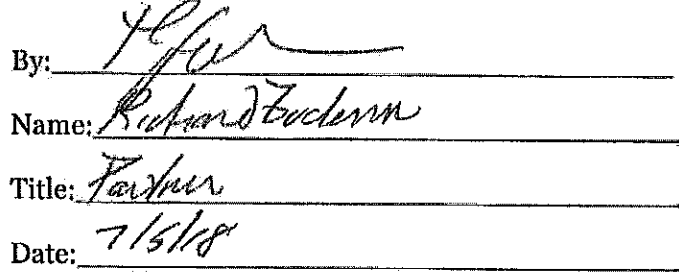 By:
Name: Richard
Title: Partner
Date: 7/5/18